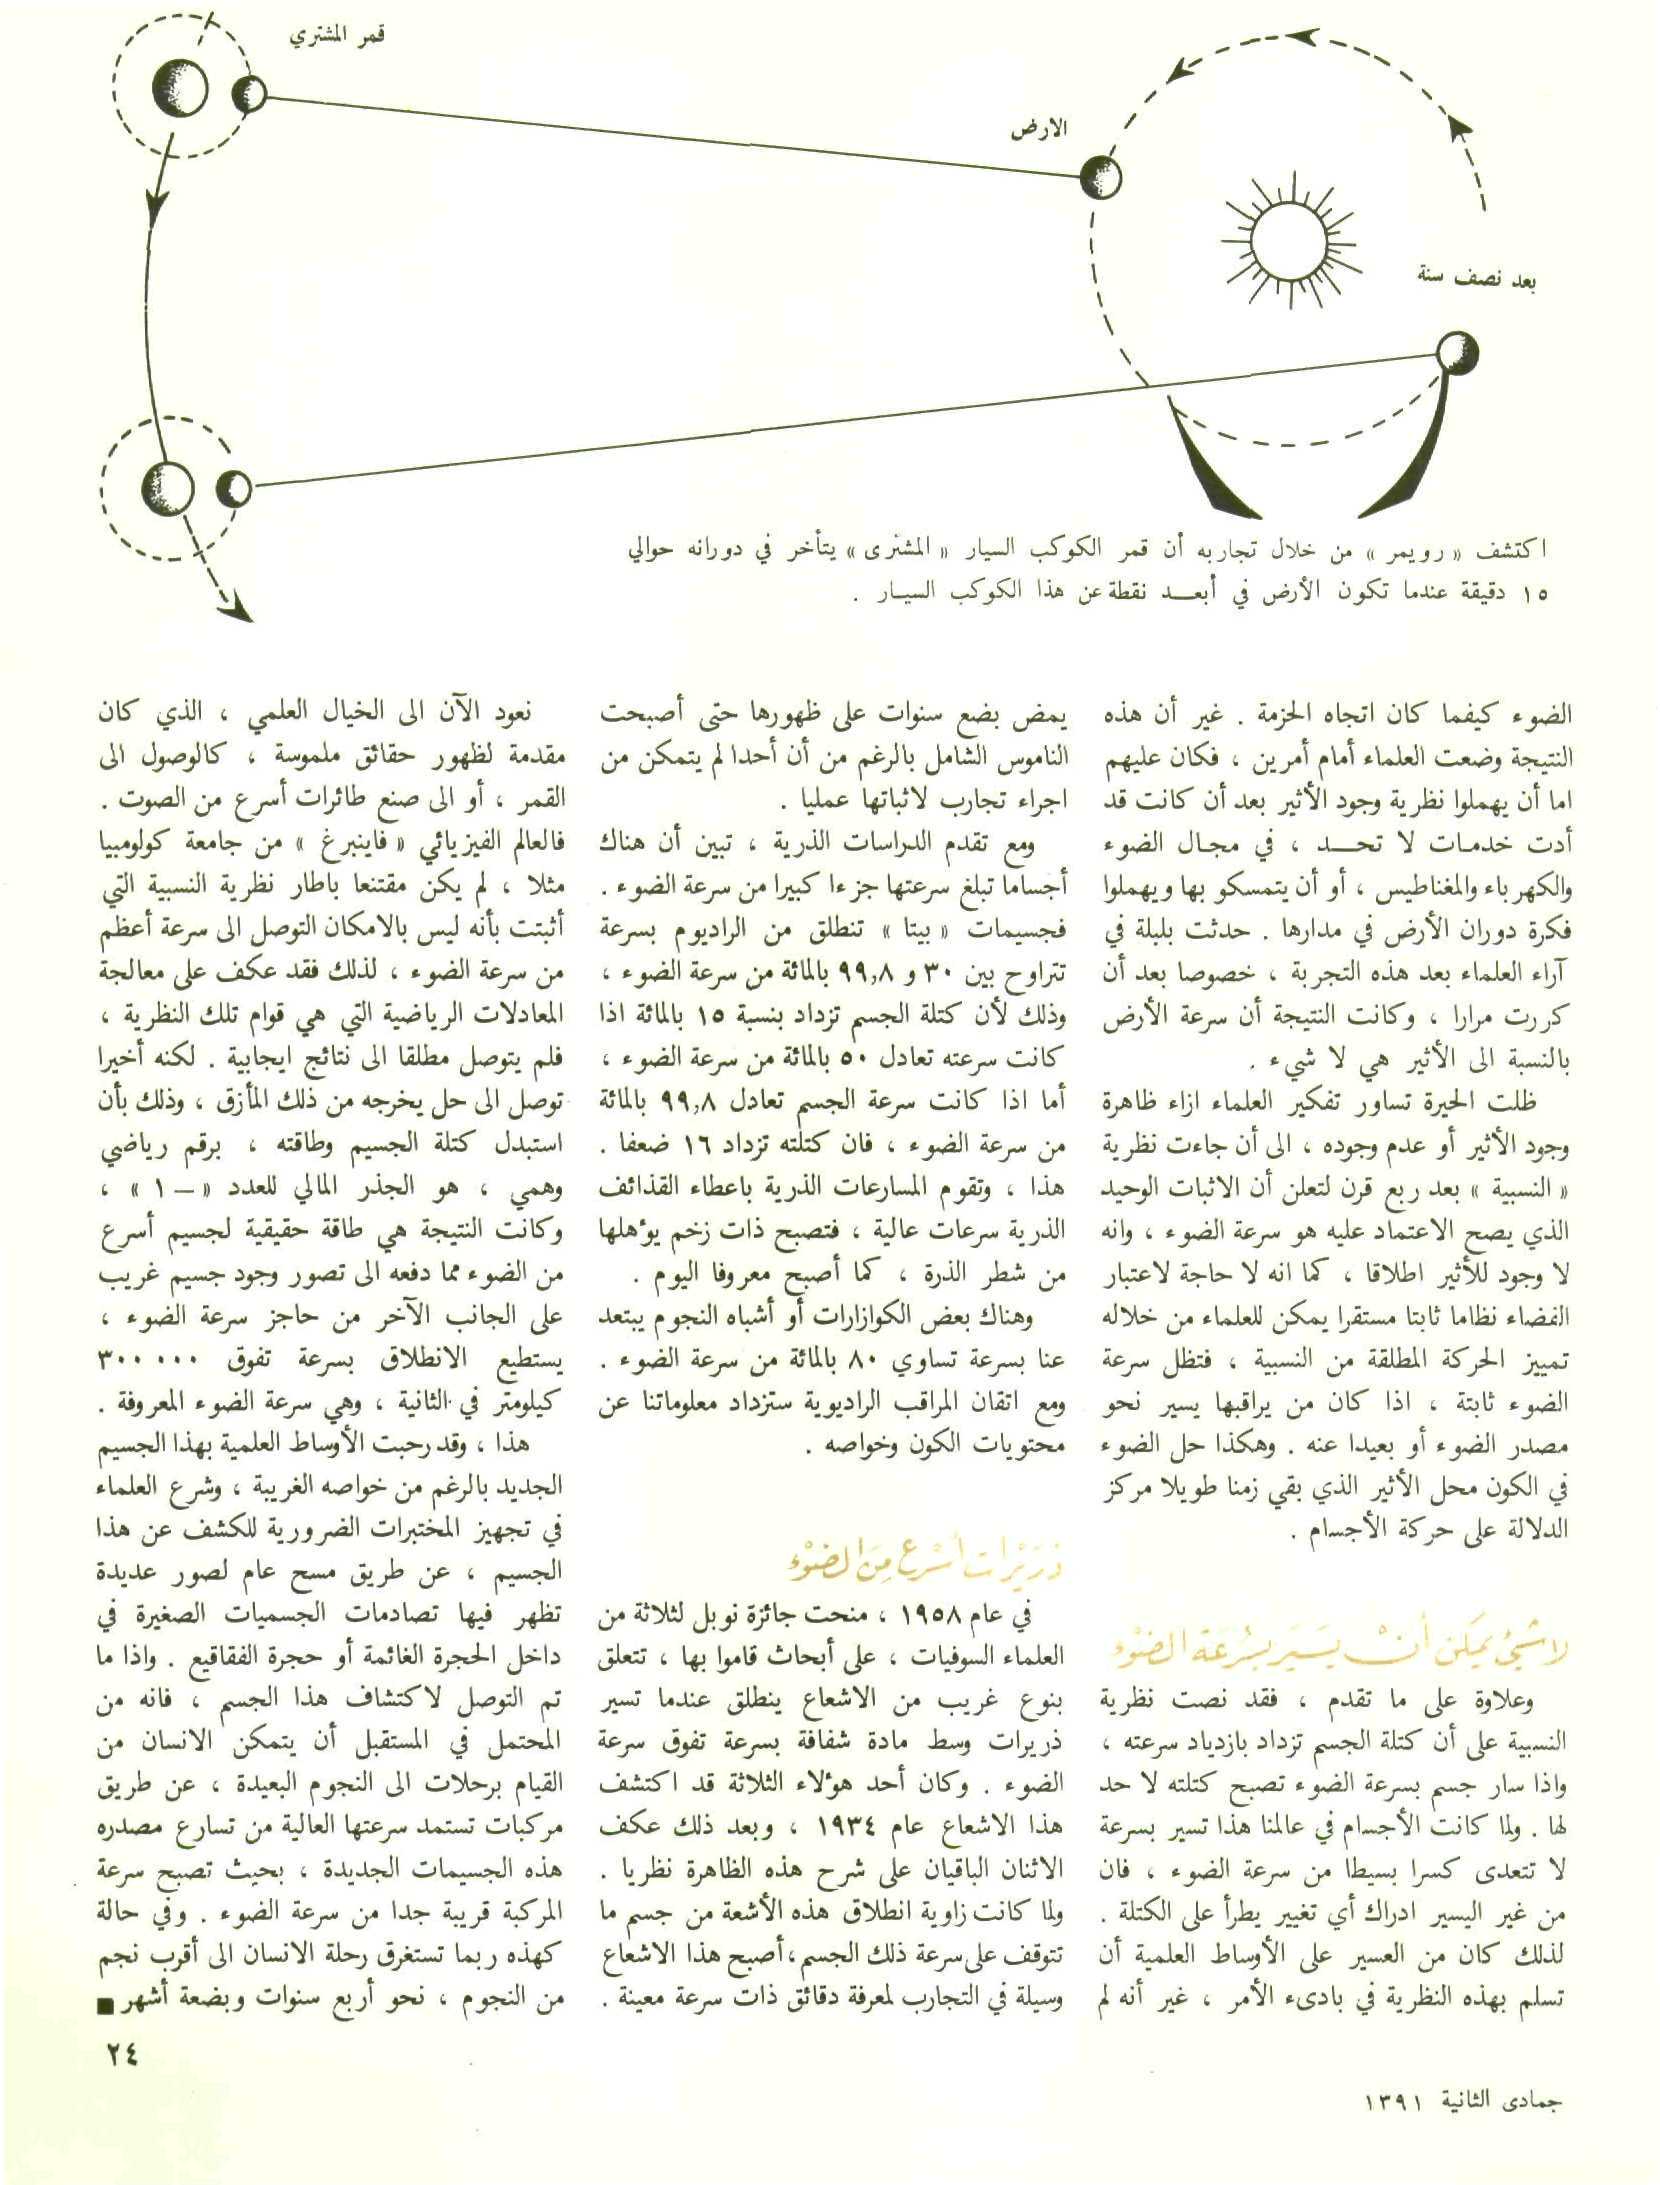 قمر المشتري
الارض
بعد نصف سنة
اكتشف « رويمر » من خلال تجاربه أن قمر الكوكب السيار « المشترى » يتأخر في دورانه حوالي
١٥ دقيقة عندما تكون الأرض في أبعـــد نقطة عن هذا الكوكب السيـار .
الضوء كيفما كان اتجاه الحزمة . غير أن هذه
النتيجة وضعت العلماء أمام أمرين ، فكان عليهم
اما أن يهملوا نظرية وجود الأثير بعد أن كانت قد
أدت خدمـات لا تحـــد ، في مجـال الضوء
والكهرباء والمغناطيس ، أو أن يتمسكو بها ويهملوا
فكرة دوران الأرض في مدارها . حدثت بلبلة في
آراء العلماء بعد هذه التجربة ، خصوصا بعد أن
كررت مرارا ، وكانت النتيجة أن سرعة الأرض
بالنسبة الى الأثير هي لا شيء .
ظلت الحيرة تساور تفكير العلماء ازاء ظاهرة
وجود الأثير أو عدم وجوده ، الى أن جاءت نظرية
« النسبية » بعد ربع قرن لتعلن أن الاثبات الوحيد
الذي يصح الاعتماد عليه هو سرعة الضوء ، وانه
لا وجود للأثير اطلاقا ، كما انه لا حاجة لاعتبار
الفضاء نظاما ثابتا مستقرا يمكن للعلماء من خلاله
تمييز الحركة المطلقة من النسبية ، فتظل سرعة
الضوء ثابتة ، اذا كان من يراقبها يسير نحو
مصدر الضوء أو بعيدا عنه . وهكذا حل الضوء
في الكون محل الأثير الذي بقي زمنا طويلا مركز
الدلالة على حركة الأجسام .
لا شيء يمكن أن يسير بسرعة الضوء
وعلاوة على ما تقدم ، فقد نصت نظرية
النسبية على أن كتلة الجسم تزداد بازدياد سرعته ،
واذا سار جسم بسرعة الضوء تصبح كتلته لا حد
لها . ولما كانت الأجسام في عالمنا هذا تسير بسرعة
لا تتعدى كسرا بسيطا من سرعة الضوء ، فان
من غير اليسير ادراك أي تغيير يطرأ على الكتلة .
لذلك كان من العسير على الأوساط العلمية أن
تسلم بهذه النظرية في بادىء الأمر ، غير أنه لم
يمض بضع سنوات على ظهورها حتى أصبحت
الناموس الشامل بالرغم من أن أحدا لم يتمكن من
اجراء تجارب لاثباتها عمليا .
ومع تقدم الدراسات الذرية ، تبين أن هناك
أجساما تبلغ سرعتها جزءا كبيرا من سرعة الضوء .
فجسيمات « بيتا » تنطلق من الراديوم بسرعة
تتراوح بين ٣٠ و ٩٩,٨ بالمائة من سرعة الضوء ،
وذلك لأن كتلة الجسم تزداد بنسبة ١٥ بالمائة اذا
كانت سرعته تعادل ٥٠ بالمائة من سرعة الضوء ،
أما اذا كانت سرعة الجسم تعادل ٩٩,٨ بالمائة
من سرعة الضوء ، فان كتلته تزداد ١٦ ضعفا .
هذا ، وتقوم المسارعات الذرية باعطاء القذائف
الذرية سرعات عالية ، فتصبح ذات زخم يؤهلها
من شطر الذرة ، كما أصبح معروفا اليوم .
وهناك بعض الكوازارات أو أشباه النجوم يبتعد
عنا بسرعة تساوي ٨٠ بالمائة من سرعة الضوء .
ومع اتقان المراقب الراديوية ستزداد معلوماتنا عن
محتويات الكون وخواصه .
ذريرات أسرع من الضوء
في عام ١٩٥٨ ، منحت جائزة نوبل لثلاثة من
العلماء السوفيات ، على أبحاث قاموا بها ، تتعلق
بنوع غريب من الاشعاع ينطلق عندما تسير
ذريرات وسط مادة شفافة بسرعة تفوق سرعة
الضوء . وكان أحد هؤلاء الثلاثة قد اكتشف
هذا الاشعاع عام ١٩٣٤ ، وبعد ذلك عكف
الاثنان الباقيان على شرح هذه الظاهرة نظريا .
ولما كانت زاوية انطلاق هذه الأشعة من جسم ما
تتوقف على سرعة ذلك الجسم ، أصبح هذا الاشعاع
وسيلة في التجارب لمعرفة دقائق ذات سرعة معينة .
نعود الآن الى الخيال العلمي ، الذي كان
مقدمة لظهور حقائق ملموسة ، كالوصول الى
القمر ، أو الى صنع طائرات أسرع من الصوت .
فالعالم الفيزيائي « فاينبرغ » من جامعة كولومبيا
مثلا ، لم يكن مقتنعا باطار نظرية النسبية التي
أثبتت بأنه ليس بالامكان التوصل الى سرعة أعظم
من سرعة الضوء ، لذلك فقد عكف على معالجة
المعادلات الرياضية التي هي قوام تلك النظرية ،
فلم يتوصل مطلقا الى نتائج ايجابية . لكنه أخيرا
توصل الى حل يخرجه من ذلك المأزق ، وذلك بأن
استبدل كتلة الجسيم وطاقته ، برقم رياضي
وهمي ، هو الجذر المالي للعدد «—١» ،
وكانت النتيجة هي طاقة حقيقية لجسيم أسرع
من الضوء مما دفعه الى تصور وجود جسيم غريب
على الجانب الآخر من حاجز سرعة الضوء ،
يستطيع الانطلاق بسرعة تفوق ٣٠٠ ٠٠٠
كيلومتر في الثانية ، وهي سرعة الضوء المعروفة .
هذا ، وقد رحبت الأوساط العلمية بهذا الجسيم
الجديد بالرغم من خواصه الغريبة ، وشرع العلماء
في تجهيز المختبرات الضرورية للكشف عن هذا
الجسيم ، عن طريق مسح عام لصور عديدة
تظهر فيها تصادمات الجسميات الصغيرة في
داخل الحجرة الغائمة أو حجرة الفقاقيع . واذا ما
تم التوصل لاكتشاف هذا الجسم ، فانه من
المحتمل في المستقبل أن يتمكن الانسان من
القيام برحلات الى النجوم البعيدة ، عن طريق
مركبات تستمد سرعتها العالية من تسارع مصدره
هذه الجسيمات الجديدة ، بحيث تصبح سرعة
المركبة قريبة جدا من سرعة الضوء . وفي حالة
كهذه ربما تستغرق رحلة الانسان الى أقرب نجم
من النجوم ، نحو أربع سنوات وبضعة أشهر ■
٢٤
جمادى الثانية ١٣٩١